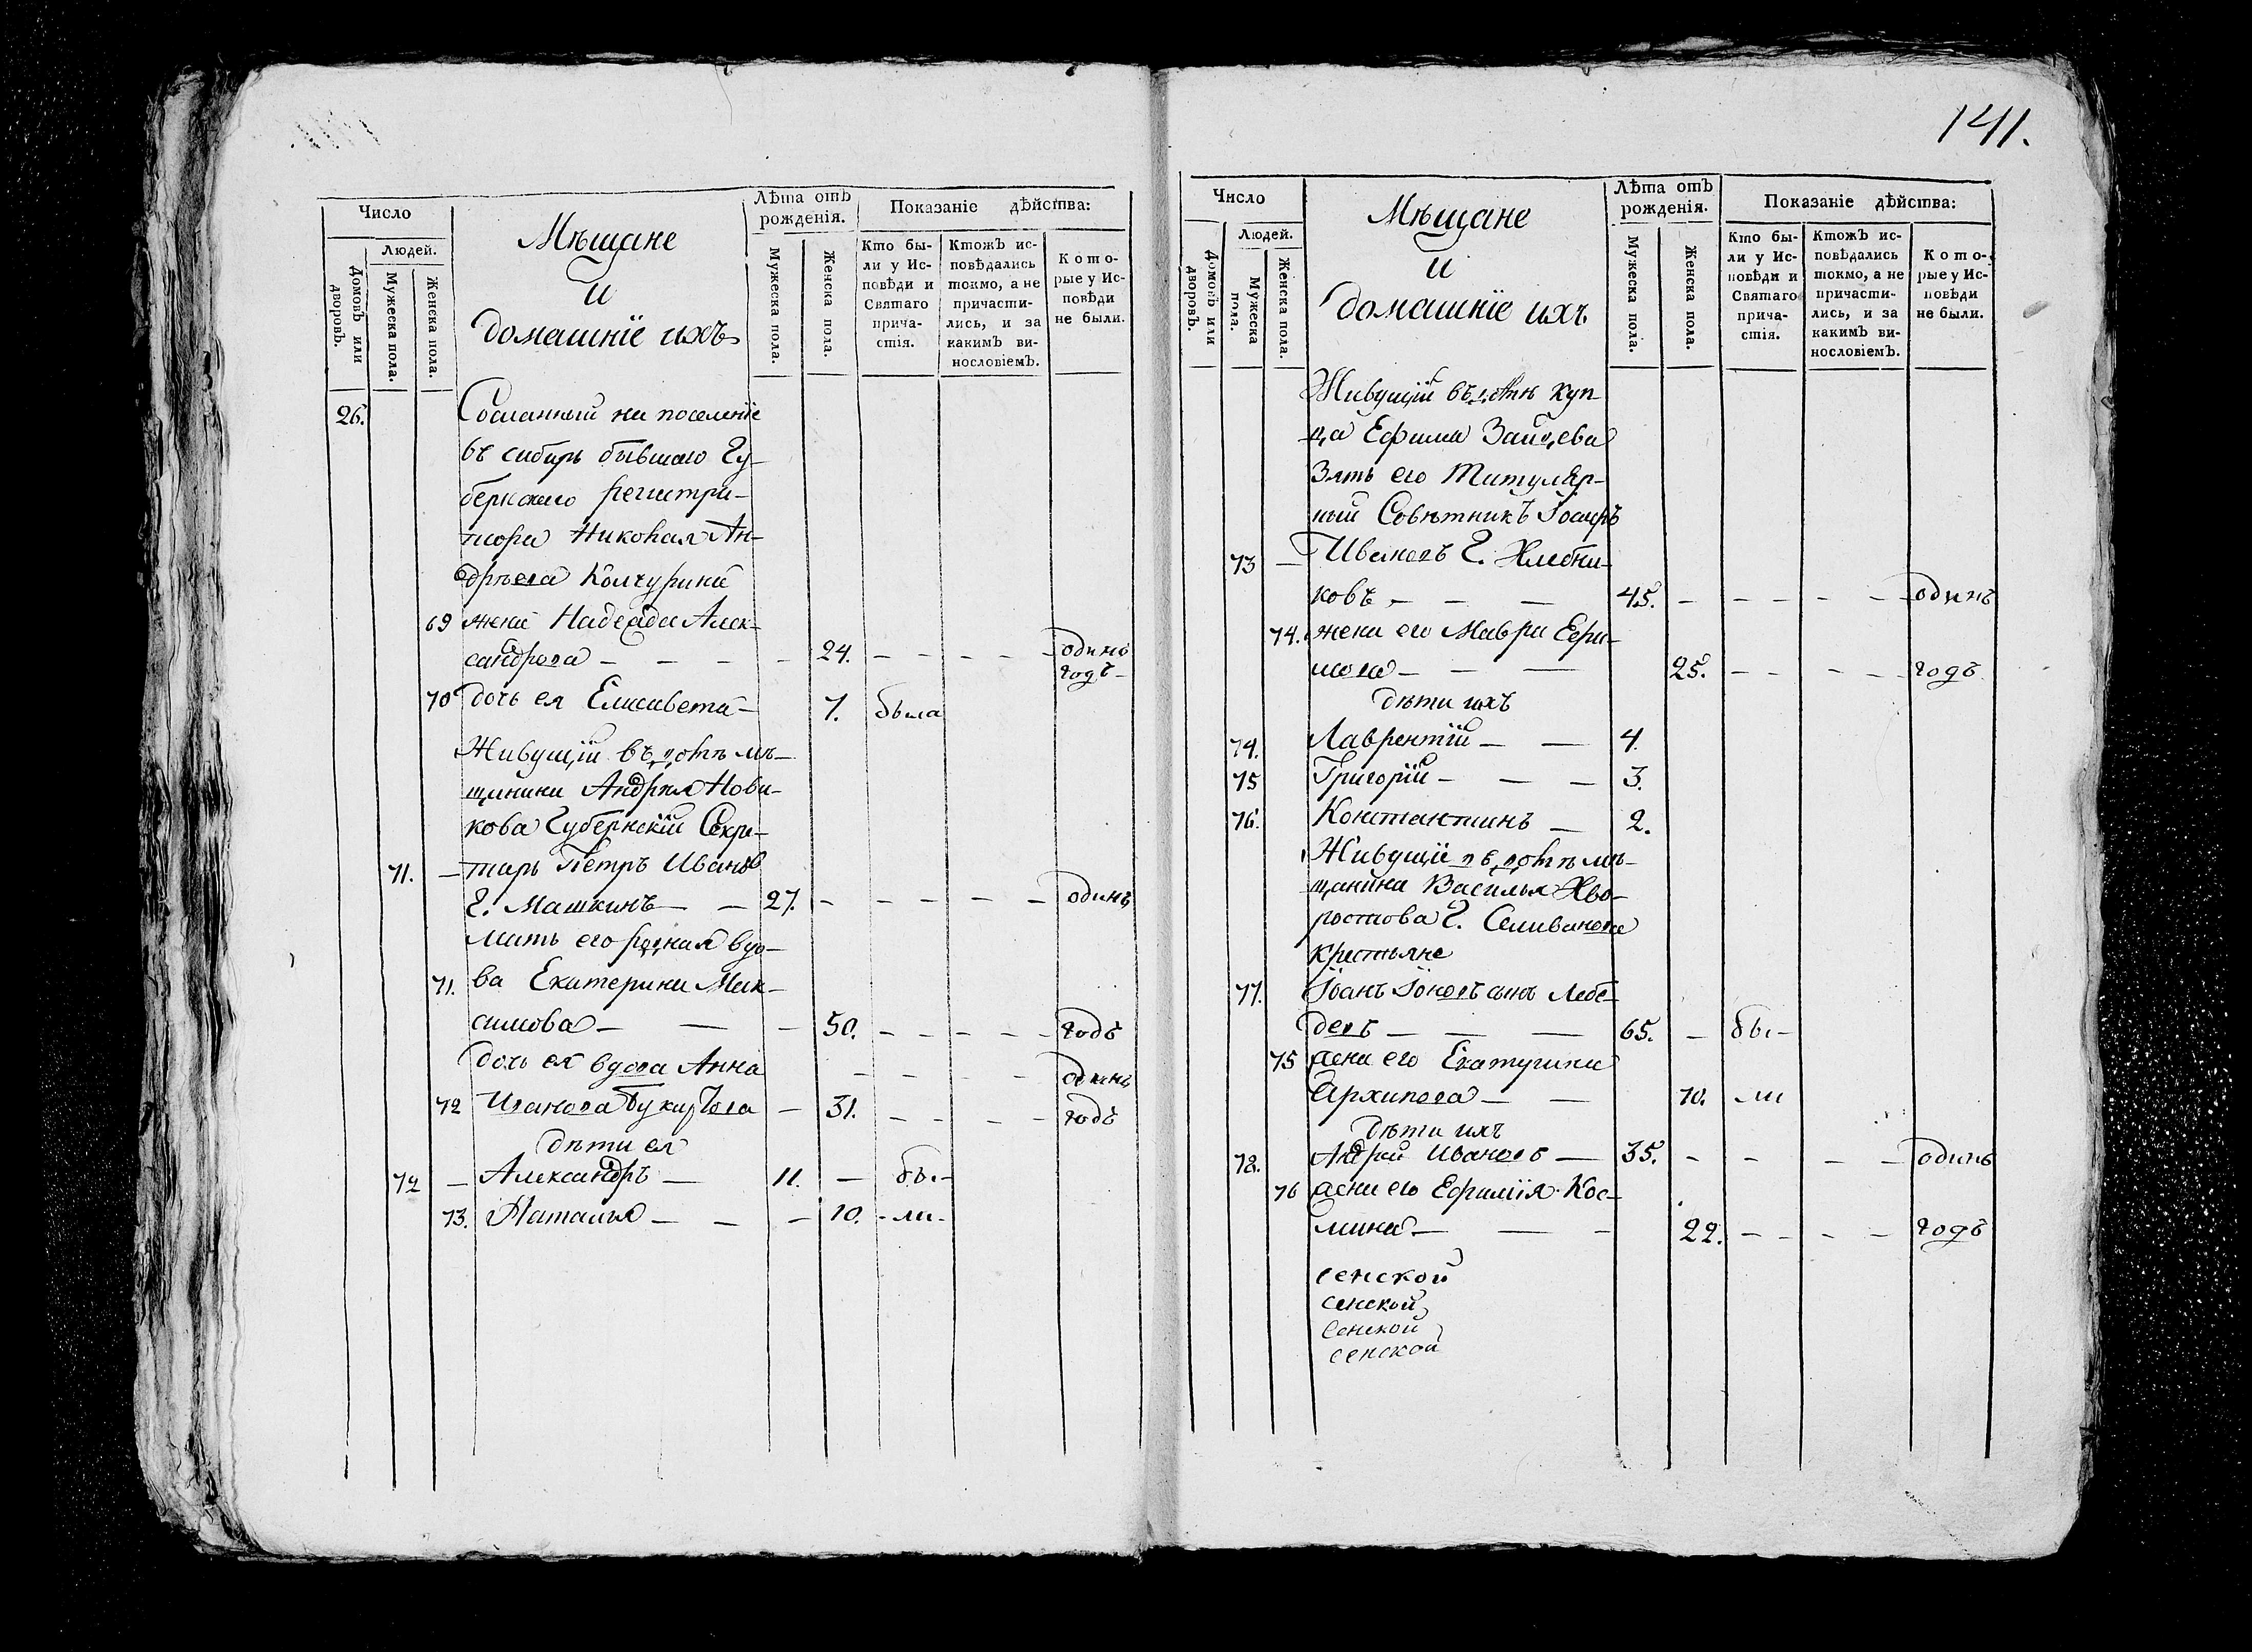 141.
Число
Людей.
Домовъ или дворовъ.
Мужеска пола.
Женска пола.
Мѣщане
и
домашнїе ихъ
Лѣта отъ рожденія.
Мужеска пола.
Женска пола.
Показаніе дѣйства:
Кто бы-
ли у Ис-
повѣди и
Святаго
прича-
стія.
Ктожъ ис-
повѣдались
токмо, а не
причасти-
лись, и за
какимъ ви-
нословіемъ.
Кото-
рые у Ис-
повѣди
не были.
26. Сосланный на поселнїе
въ сибирь бывшаго Гу-
бернскаго регистра-
тора Николая Ан-
дрѣева Кочурина
69 жена Надежда Алек-
сандрова — — — — 24. — — — — — одинъ
годъ —
70 дочь ея Елисавета — 7. была
Живущїй въ домѣ мѣ-
щанина Андрея Нови-
кова Губернскїй Секре-
71. — тарь Петръ Ивановъ
Г. Машкинъ — — 27. — — — — — одинъ
Мать его родная вдо-
71. ва Екатерина Мак-
симова — — — 50. — — — — — годъ
дочь ея вдова Анна — — — — одинъ
72 Иванова — 31. — — — — годъ
дѣти ея
72 — Александръ — 11. — бы-
73. Наталья — — — 10. - ли -
Число
Людей.
Домовъ или дворовъ.
Мужеска пола.
Женска пола.
Мѣщане
и
домашнїе ихъ
Лѣта отъ рожденія.
Мужеска пола.
Женска пола.
Показаніе дѣйства:
Кто бы-
ли у Ис-
повѣди и
Святаго
прича-
стія.
Ктожъ ис-
повѣдались
токмо, а не
причасти-
лись, и за
какимъ ви-
нословіемъ.
Кото-
рые у Ис-
повѣди
не были.
Живущїй въ домѣ куп-
ца Ефима Зайцева
Зять его Титуляр-
ный Совѣтникъ Їосифъ
73 — Ивановъ Г. Хлебни-
ковъ — — — 45. — — — — — одинъ
74. жена его Мавра Ефи-
мова — — — 25. — — — — — годъ
дѣти ихъ
74. Лаврентїй — — 4.
75 Григорїй — — — 3.
76. Константинъ — 2.
Живущїе въ домѣ мѣ-
щанина Василья Хво-
ростова Г. Селиванова
крестьяне
77. Їоанъ Їоновъ сынъ Лебе-
девъ — — — 65. — бы-
75 жена его Екатерина
Архипова — — 70. -ли
дѣти ихъ
78. Андрей Ивановъ — 35. — — — — одинъ
76 жена его Ефимїя Кос-
мина — — — 22. — — — — годъ
сенской
сенской
сенской
сенской